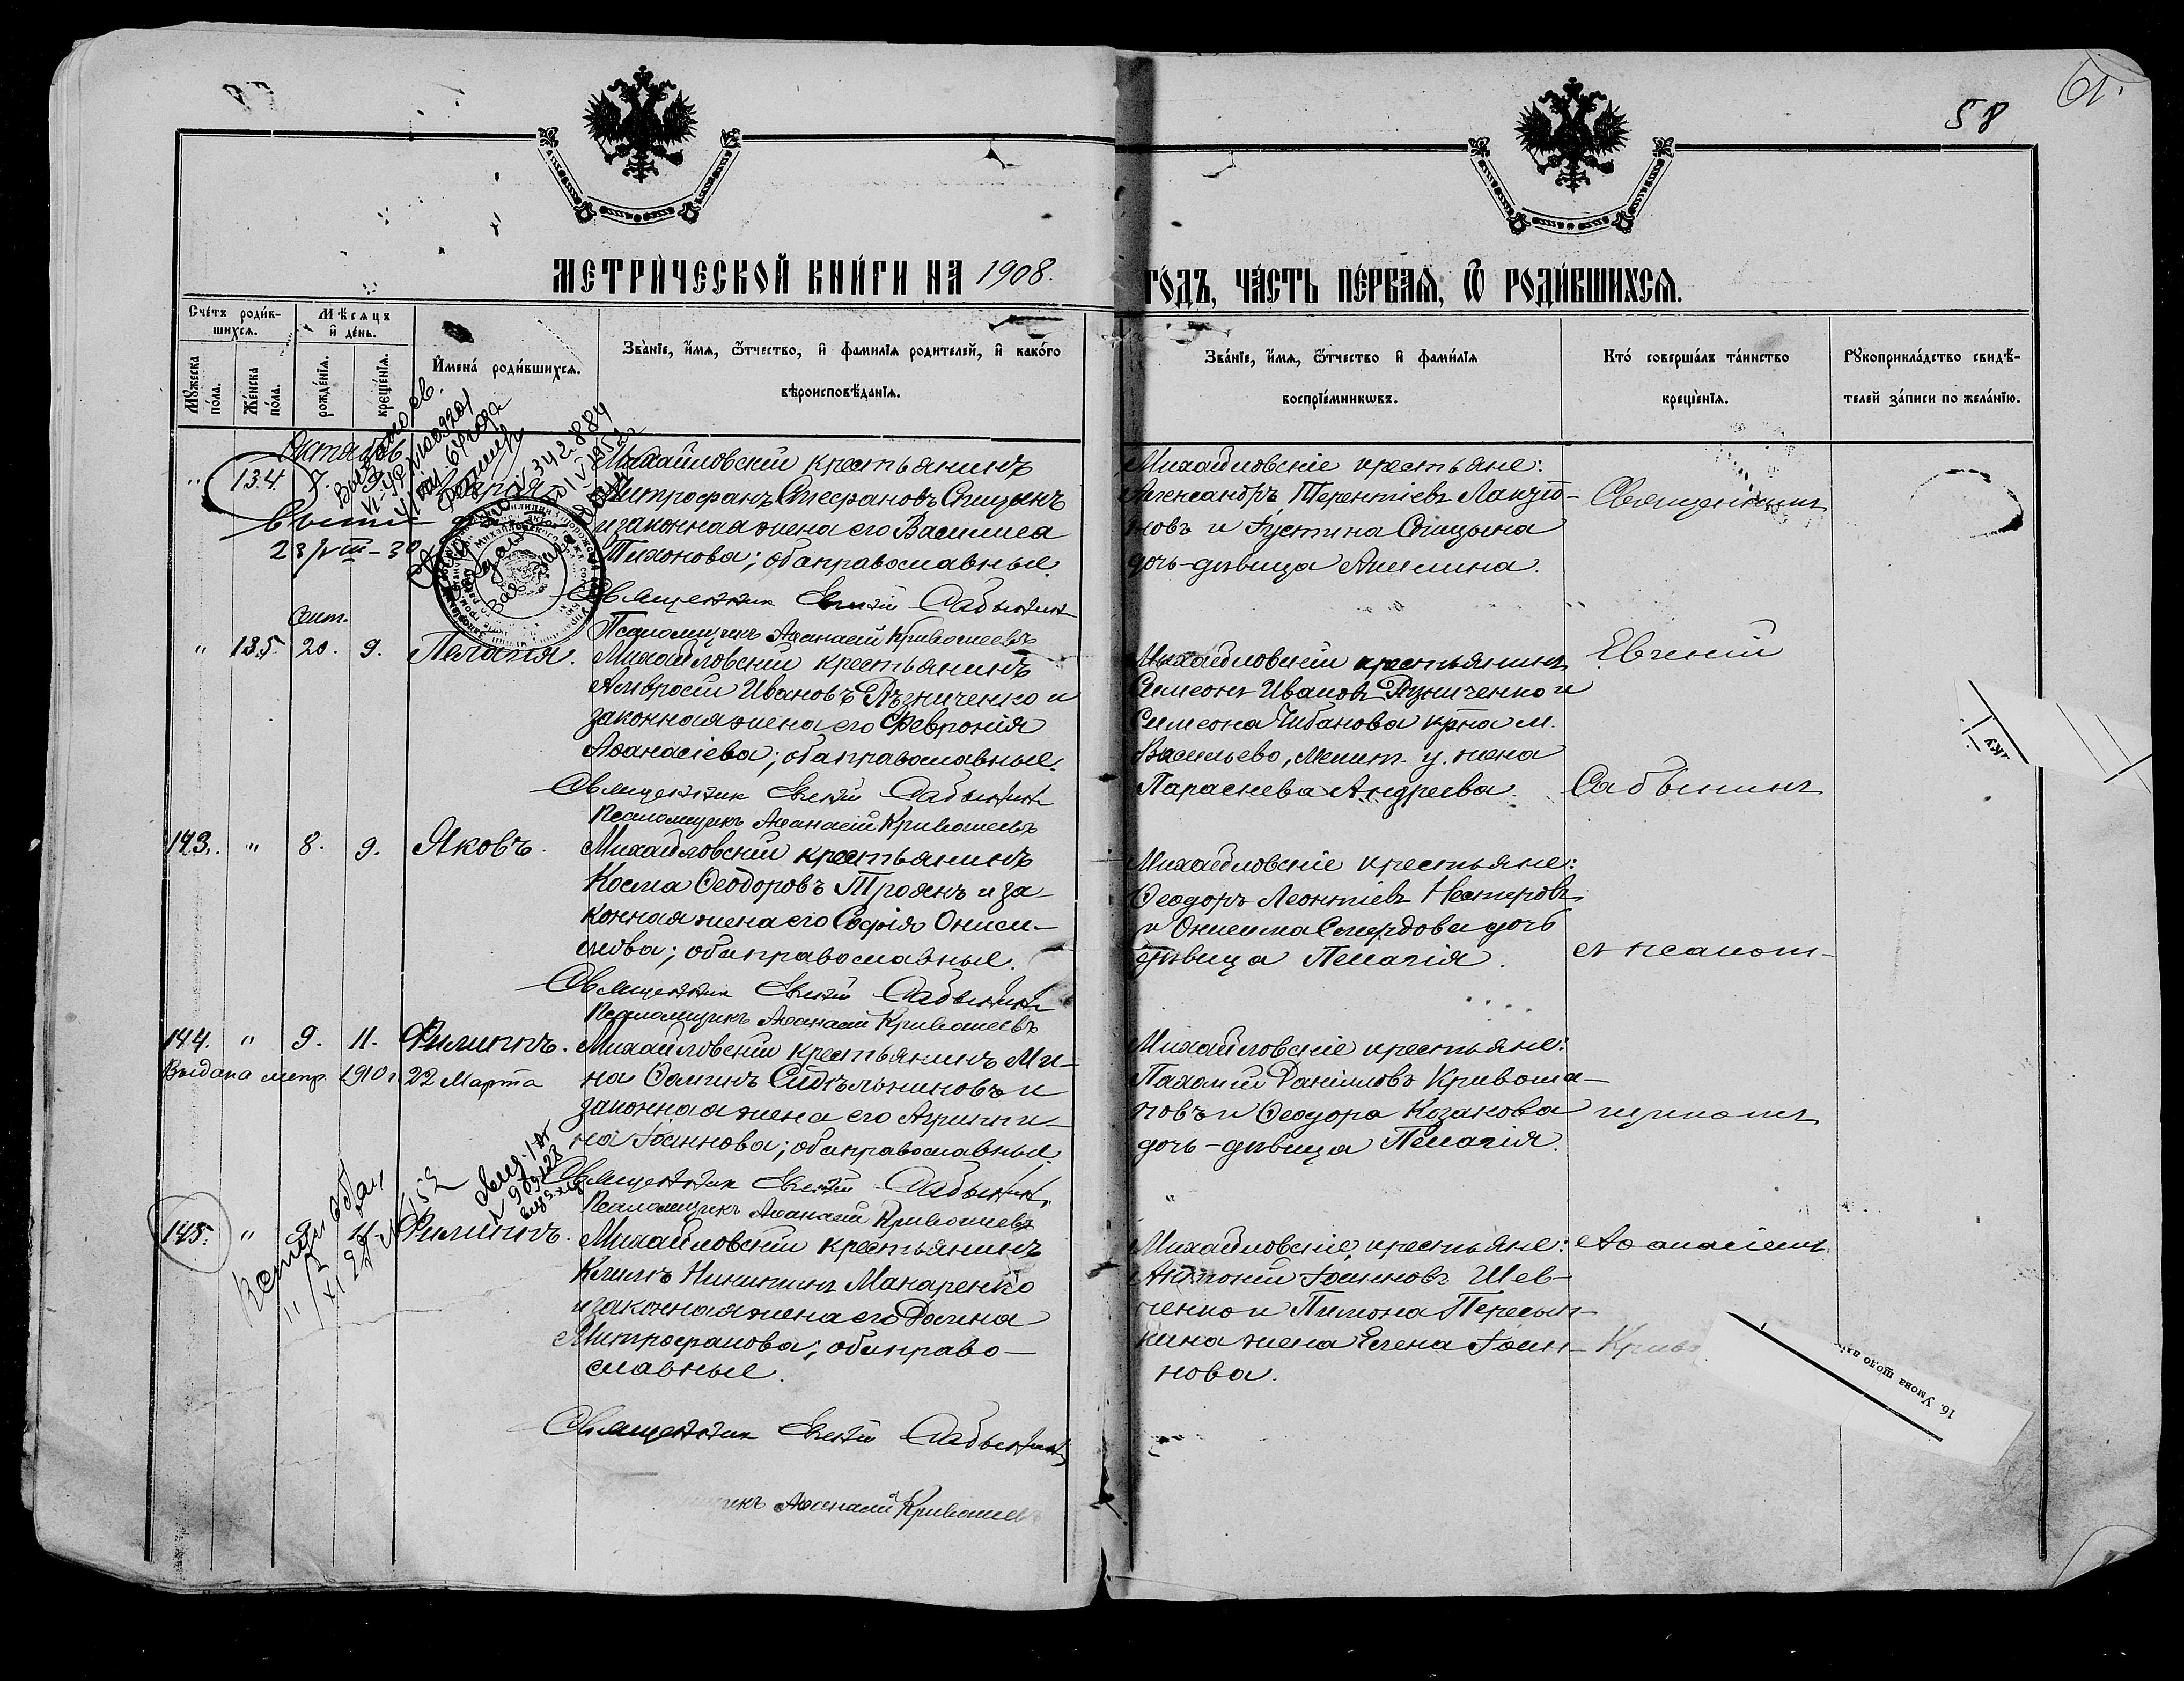 61.
58
МЕТРИЧЕСКОЙ КНИГИ НА 1908. ГОДЪ, ЧАСТЬ ПЕРВАЯ, Ѿ РОДИВШИХСЯ.
Счётъ родившихся.
Мѣсяцъ и день.
Имена родившихся.
Званіе, имя, ѿчество, и фамилія родителей, и какого вѣроисповѣданія.
Званіе, имя, ѿчество и фамилія воспріемниковъ.
Кто совершалъ таинство крещенія.
Рукоприкладство свидѣтелей записи по желанію.
Мужеска пола.
Женска пола.
рожденія.
крещенія.
Октябрь
" 134. 7.
23/VIII-30
Михайловскій крестьянинъ
Митрофанъ Стефановъ Спицынъ
и законная жена его Василиса
Тихонова; оба православные.
Священник Евгений Сабынин
Псаломщикъ Аѳанасій Кривошеевъ
Михайловскіе крестьяне:
Александръ Терентіевъ
новъ и Іустина Спицына
дочь-дѣвица Акилина.
Священникъ
Сент.
" 135. 20. 9. Пелагія.
Михайловскій крестьянинъ
Амвросій Ивановъ Рѣзниченко и
законная жена его Февронія
Аѳанасіева; оба православные.
Священник Евгений Сабынин
Псаломщикъ Аѳанасій Кривошеевъ
Михайловскій крестьянинъ
Симеонъ Ивановъ Рѣзниченко и
Симеона Чибанова кр-на м.
Васильево, Мелит. у. жена
Параскева Андреева.
Евгеній
Сабынинъ
143. " 8. 9. Яковъ.
Михайловскій крестьянинъ
Косма Ѳеодоровъ Троянъ и за-
конная жена его Софія Ониси-
мова; оба православные.
Священник Евгений Сабынин
Псаломщикъ Аѳанасій Кривошеевъ
Михайловскіе крестьяне:
Ѳеодоръ Леонтіевъ Нестеровъ
и Онисима Смердова дочь
дѣвица Пелагія.
съ псалом-
144. " 9. 11. Филиппъ.
Выдана метр. 1910 г. 22 Марта
Михайловскій крестьянинъ Ми-
на Ѳоминъ Сидѣльниковъ и
законная жена его Агриппи-
на Іоаннова; оба православные.
Священник Евгений Сабынин
Псаломщикъ Аѳанасій Кривошеевъ
Михайловскіе крестьяне:
Пахомій Даниловъ Кривоша-
повъ и Ѳеодора Козакова
дочь-дѣвица Пелагія.
щикомъ
145. " 9. 11. Филиппъ.
Михайловскій крестьянинъ
Климъ Никитинъ Макаренко
и законная жена его Домна
Митрофанова; оба право-
славные.
Священник Евгений Сабынин
Аѳанасій Кривошеев
Михайловскіе крестьяне:
Антоній Іоанновъ Шев-
ченко и Пимона Пересып-
кина жена Елена Іоан-
нова.
Аѳанасіемъ
16. Умова щодо